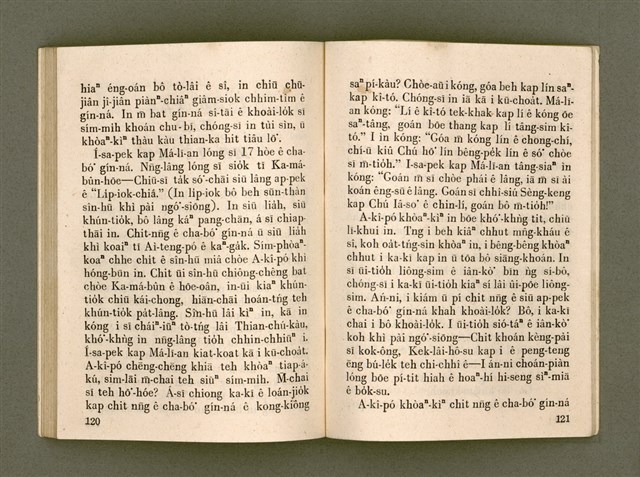 hiaⁿ éng-oán bô tò-lâi ê sî, in chiū chū-
jiân jî-jiân piàⁿ-chiâⁿ giâm-siok chhim-tîm ê
gín-ná. In m̄ bat gín-ná sî-tāi ê khoài-lo̍k sī
sim-mi̍h khoán chu-bī, chóng-sī in tùi sin, ū
khòaⁿ-kìⁿ thàu kàu thian-ka hit tiâu lō͘.
Í-sa-pek kap Má-lī-an lóng sī 17 hòe ê cha-
bó͘ gín-ná. Nn̄g-lâng lóng sī sio̍k tī Ka-má-
bûn-hōe—Chiū-sī ta̍k só͘-chāi siū lâng ap-pek
ê “Li̍p-iok-chiá.” (In li̍p-iok bô beh sūn-thàn
sìn-hū khì pài ngó͘-siōng). In siū lia̍h, siū
khún-tio̍k, bô lâng káⁿ pang-chān, á sī chiap-
thāi in. Chit-nn̄g ê cha-bó͘ gín-ná ū siū lia̍h
khì koaiⁿ tī Ai-teng-pó ê kaⁿ-ga̍k. Sim-phòaⁿ-
koaⁿ chhe chit ê sìn-hū miâ chòe A-kì-pó khì
hóng-būn in. Chit ūi sìn-hū chiông-chêng bat
chòe Ka-má-bûn ê hōe-oân, in-ūi kiaⁿ khún-
tio̍k chiū kái-chong, hiān-chāi hoán-tńg teh
khún-tio̍k pa̍t-lâng. Sìn-hū lâi kìⁿ in, kā in
kóng i sī cháiⁿ-iūⁿ tò-tńg lâi Thian-chú-kàu,
khó͘-khǹg in nn̄g-lâng tio̍h chhin-chhiūⁿ i.
Í-sa-pek kap Má-lī-an kiat-koat kā i kū-choa̍t.
A-kì-pó chēng-chēng khiā teh khòaⁿ tiap-á-
kú, sim-lāi m̄-chai teh siūⁿ sim-mi̍h. M-chai
sī teh hó͘-hóe? Á-sī chiong ka-kī ê loán-jio̍k
kap chit nn̄g ê cha-bó͘ gín-ná ê kong-kiông
120
saⁿ pí-kàu? Chòe-aū i kóng, góa beh kap lín saⁿ-
kap kî-tó. Chóng-sī in iā kā i kū-choa̍t. Má-lī-
an kóng: “Lí ê kî-tó tek-khak kap lí ê kóng ōe
saⁿ-tâng, goán bōe thang kap lí tâng-sim kî-
tó.” I in kóng: “Góa m̄ kóng lín ê chong-chí,
chí-ū kiû Chú hō͘ lín bêng-pe̍k lín ê só͘ chòe
sī m̄-tio̍h.” Í-sa-pek kap Má-lī-an tâng-siaⁿ in
kóng: “Goán m̄ sī chòe phái ê lâng, iā m̄ sī ài
koán êng-sū ê lâng. Goán sī chhi-siú Sèng-keng
kap Chú Iâ-so͘ ê chin-lí, goán bô m̄-tio̍h!”
A-kì-pó khòaⁿ-kìⁿ in bōe khó͘-khǹg tit, chiū
lī-khui in. Tng i beh kiâⁿ chhut mn̂g-kháu ê
sî, koh oa̍t-tńg-sin khòaⁿ in, i bêng-bêng khòaⁿ
chhut i ka-kī kap in ū tōa bô siāng-khoán. In
sī ūi-tio̍h liông-sim ê iân-kò͘ bīn n̄g sí-bô,
chóng-sī i ka-kī ūi-tio̍h kiaⁿ sí lâi ûi-pōe liông-
sim. Án-ni, i kiám ū pí chit nn̄g ê siū ap-pek
ê cha-bó͘ gín-ná khah khoài-lo̍k? Bô, i ka-kī
chai i bô khoài-lo̍k. I ūi-tio̍h sió-táⁿ ê iân-kò͘
koh khì pài ngó͘-siōng—Chit khoán kèng-pài
sī kok-ông, Kek-lâi-hō-su kap i ê peng-teng
ēng bú-le̍k teh chi-chhî ê—I án-ni choán-piàn
lóng bōe pí-tit hiah ê hoaⁿ-hí hi-seng sìⁿ-miā
ê bo̍k-su.
A-kì-pó khòaⁿ-kìⁿ chit nn̄g ê cha-bó͘ gín-ná
121